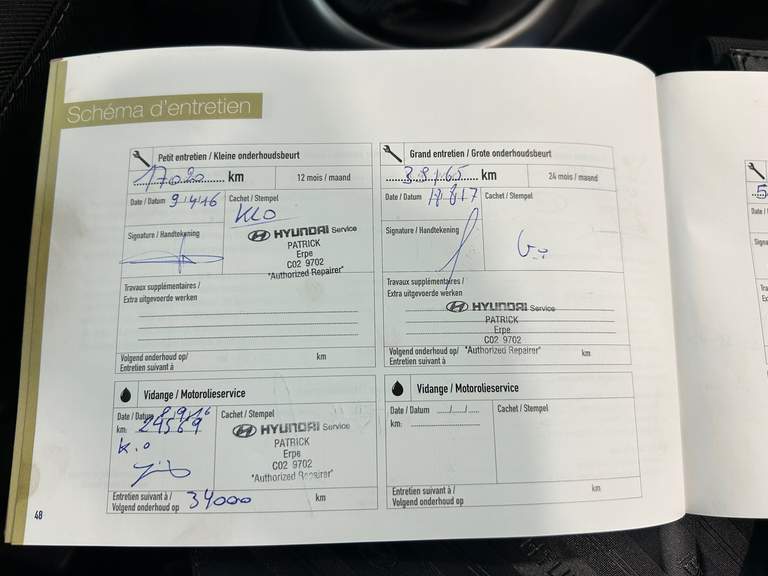 Schéma d'entretien
Petit entretien / Kleine onderhoudsbeurt
17020 km
12 mois / maand
Date / Datum 9/4/16
Cachet / Stempel
KLO
Signature / Handtekening
HYUNDAI Service
PATRICK
Erpe
C02 9702
"Authorized Repairer"
Travaux supplémentaires /
Extra uitgevoerde werken
Volgend onderhoud op/
Entretien suivant à
km
Grand entretien / Grote onderhoudsbeurt
38165 km
24 mois / maand
Date / Datum
Cachet / Stempel
Signature / Handtekening
Travaux supplémentaires /
Extra uitgevoerde werken
HYUNDAI Service
PATRICK
Erpe
C02 9702
"Authorized Repairer"
Volgend onderhoud op/
Entretien suivant à
km
Vidange / Motorolieservice
Date / Datum 8/9/16
km: 24569
Cachet / Stempel
HYUNDAI Service
PATRICK
Erpe
C02 9702
"Authorized Repairer"
Entretien suivant à /
Volgend onderhoud op
34000 km
Vidange / Motorolieservice
Date / Datum ..../..../....
km:
Cachet / Stempel
Entretien suivant à /
Volgend onderhoud op
km
48